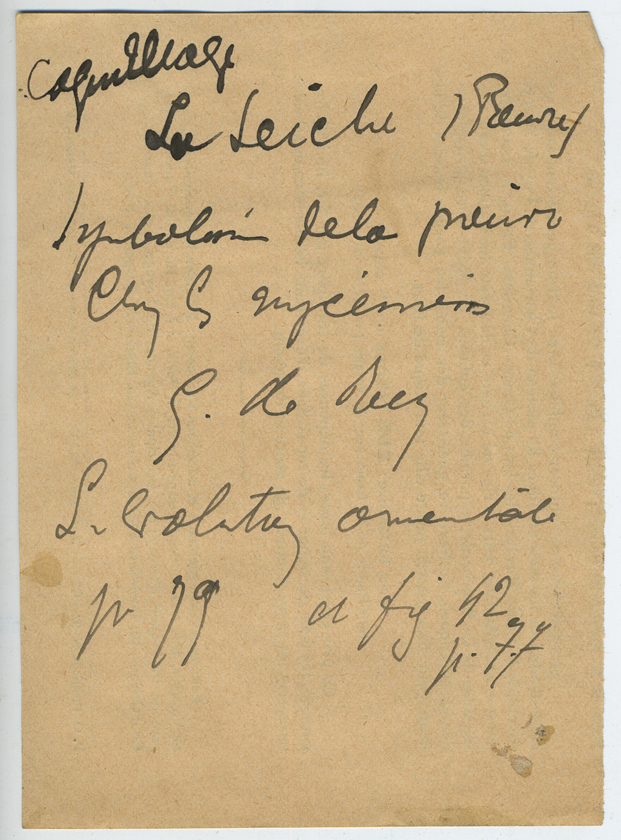 Coquillage
La Seiche (Pieuvre)
Symbolisme de la pieuvre
Chez les mycéniens
G. de Recy
L'évolution ornementale
p. 79 et fig 42
p. 77